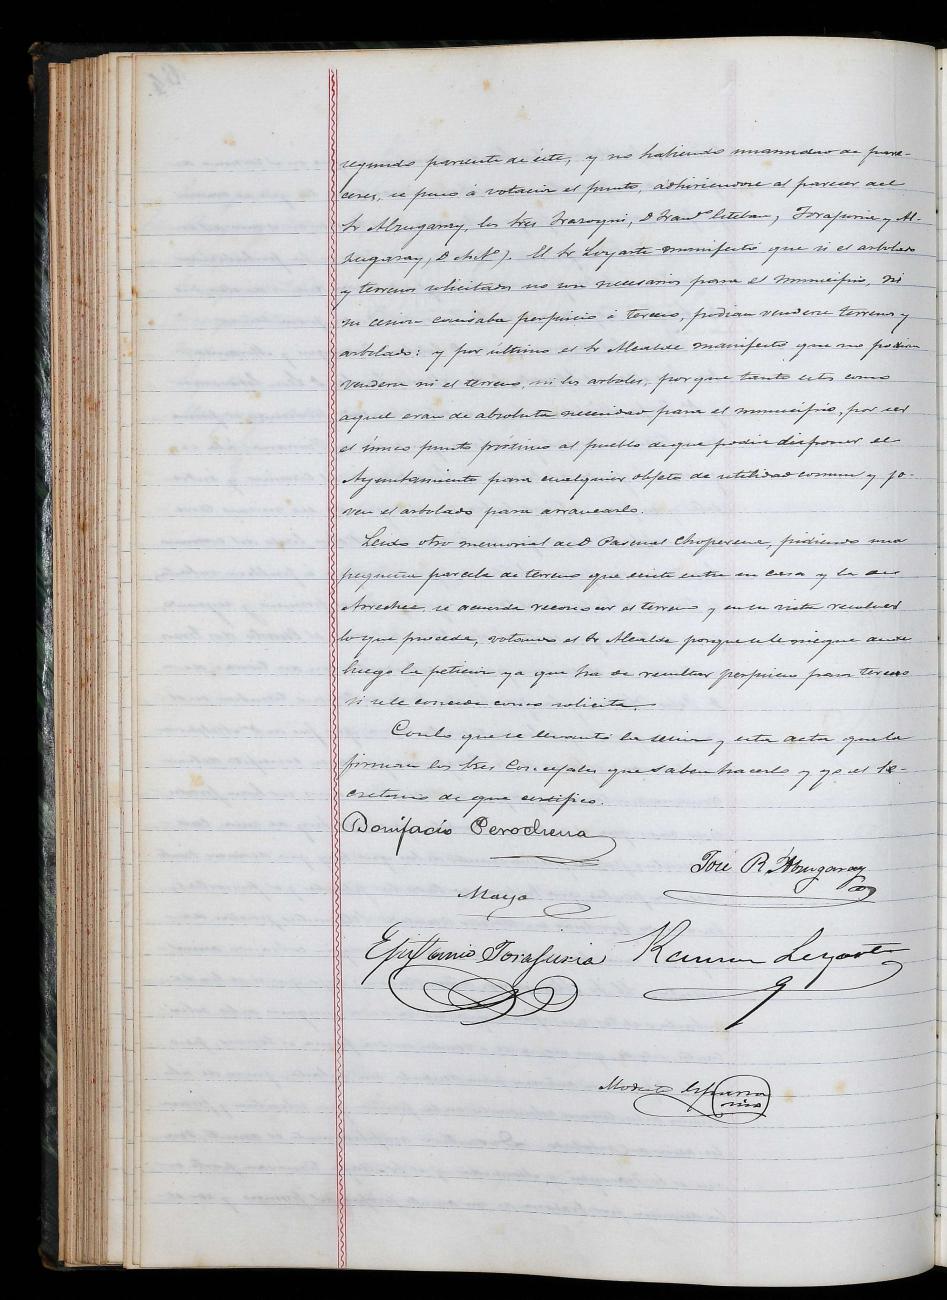 segundo pariente de éste, y no habiendo unanimidad de pare-
ceres, se puso á votación el punto, adhiriendose al parecer del
Sr Abrugaray, los tres D Franco Esteban, Torafuria y
D. Anto). El Sr Loyarte manifestó que si el arbolado
y terrenos solicitados no son necesarios para el municipio, ni
su cesion causaba perjuicio á tercero, podian venderse terreno y
arbolado: y por último el Sr Alcalde manifestó que no podian
venderse ni el terreno, ni los arboles, porque tanto estos como
aquel eran de absoluta necesidad para el municipio, por ser
el único punto próximo al pueblo de que podia disponer el
Ayuntamiento para cualquier objeto de utilidad comun y jo-
ven el arbolado para arrancarlo.
Leido otro memorial de D Pascual Choperena, pidiendo una
pequeña parcela de terreno que existe entre su casa y la de
Arrechea, se acuerda reconocer el terreno y en su vista resolver
lo que proceda, votando el Sr Alcalde porque se le niegue desde
luego la peticion ya que ha de resultar perjuicio para tercero
si se le concede como solicita.
Con lo que se levantó la sesion y esta acta que la
firman los tres Concejales que saben hacerlo y yo el Se-
cretario de que certifico.
Bonifacio Perochena
José R Abrugaray
Maya
Epifanio Torafuria Ramon Loyarte
Modesto Esparza